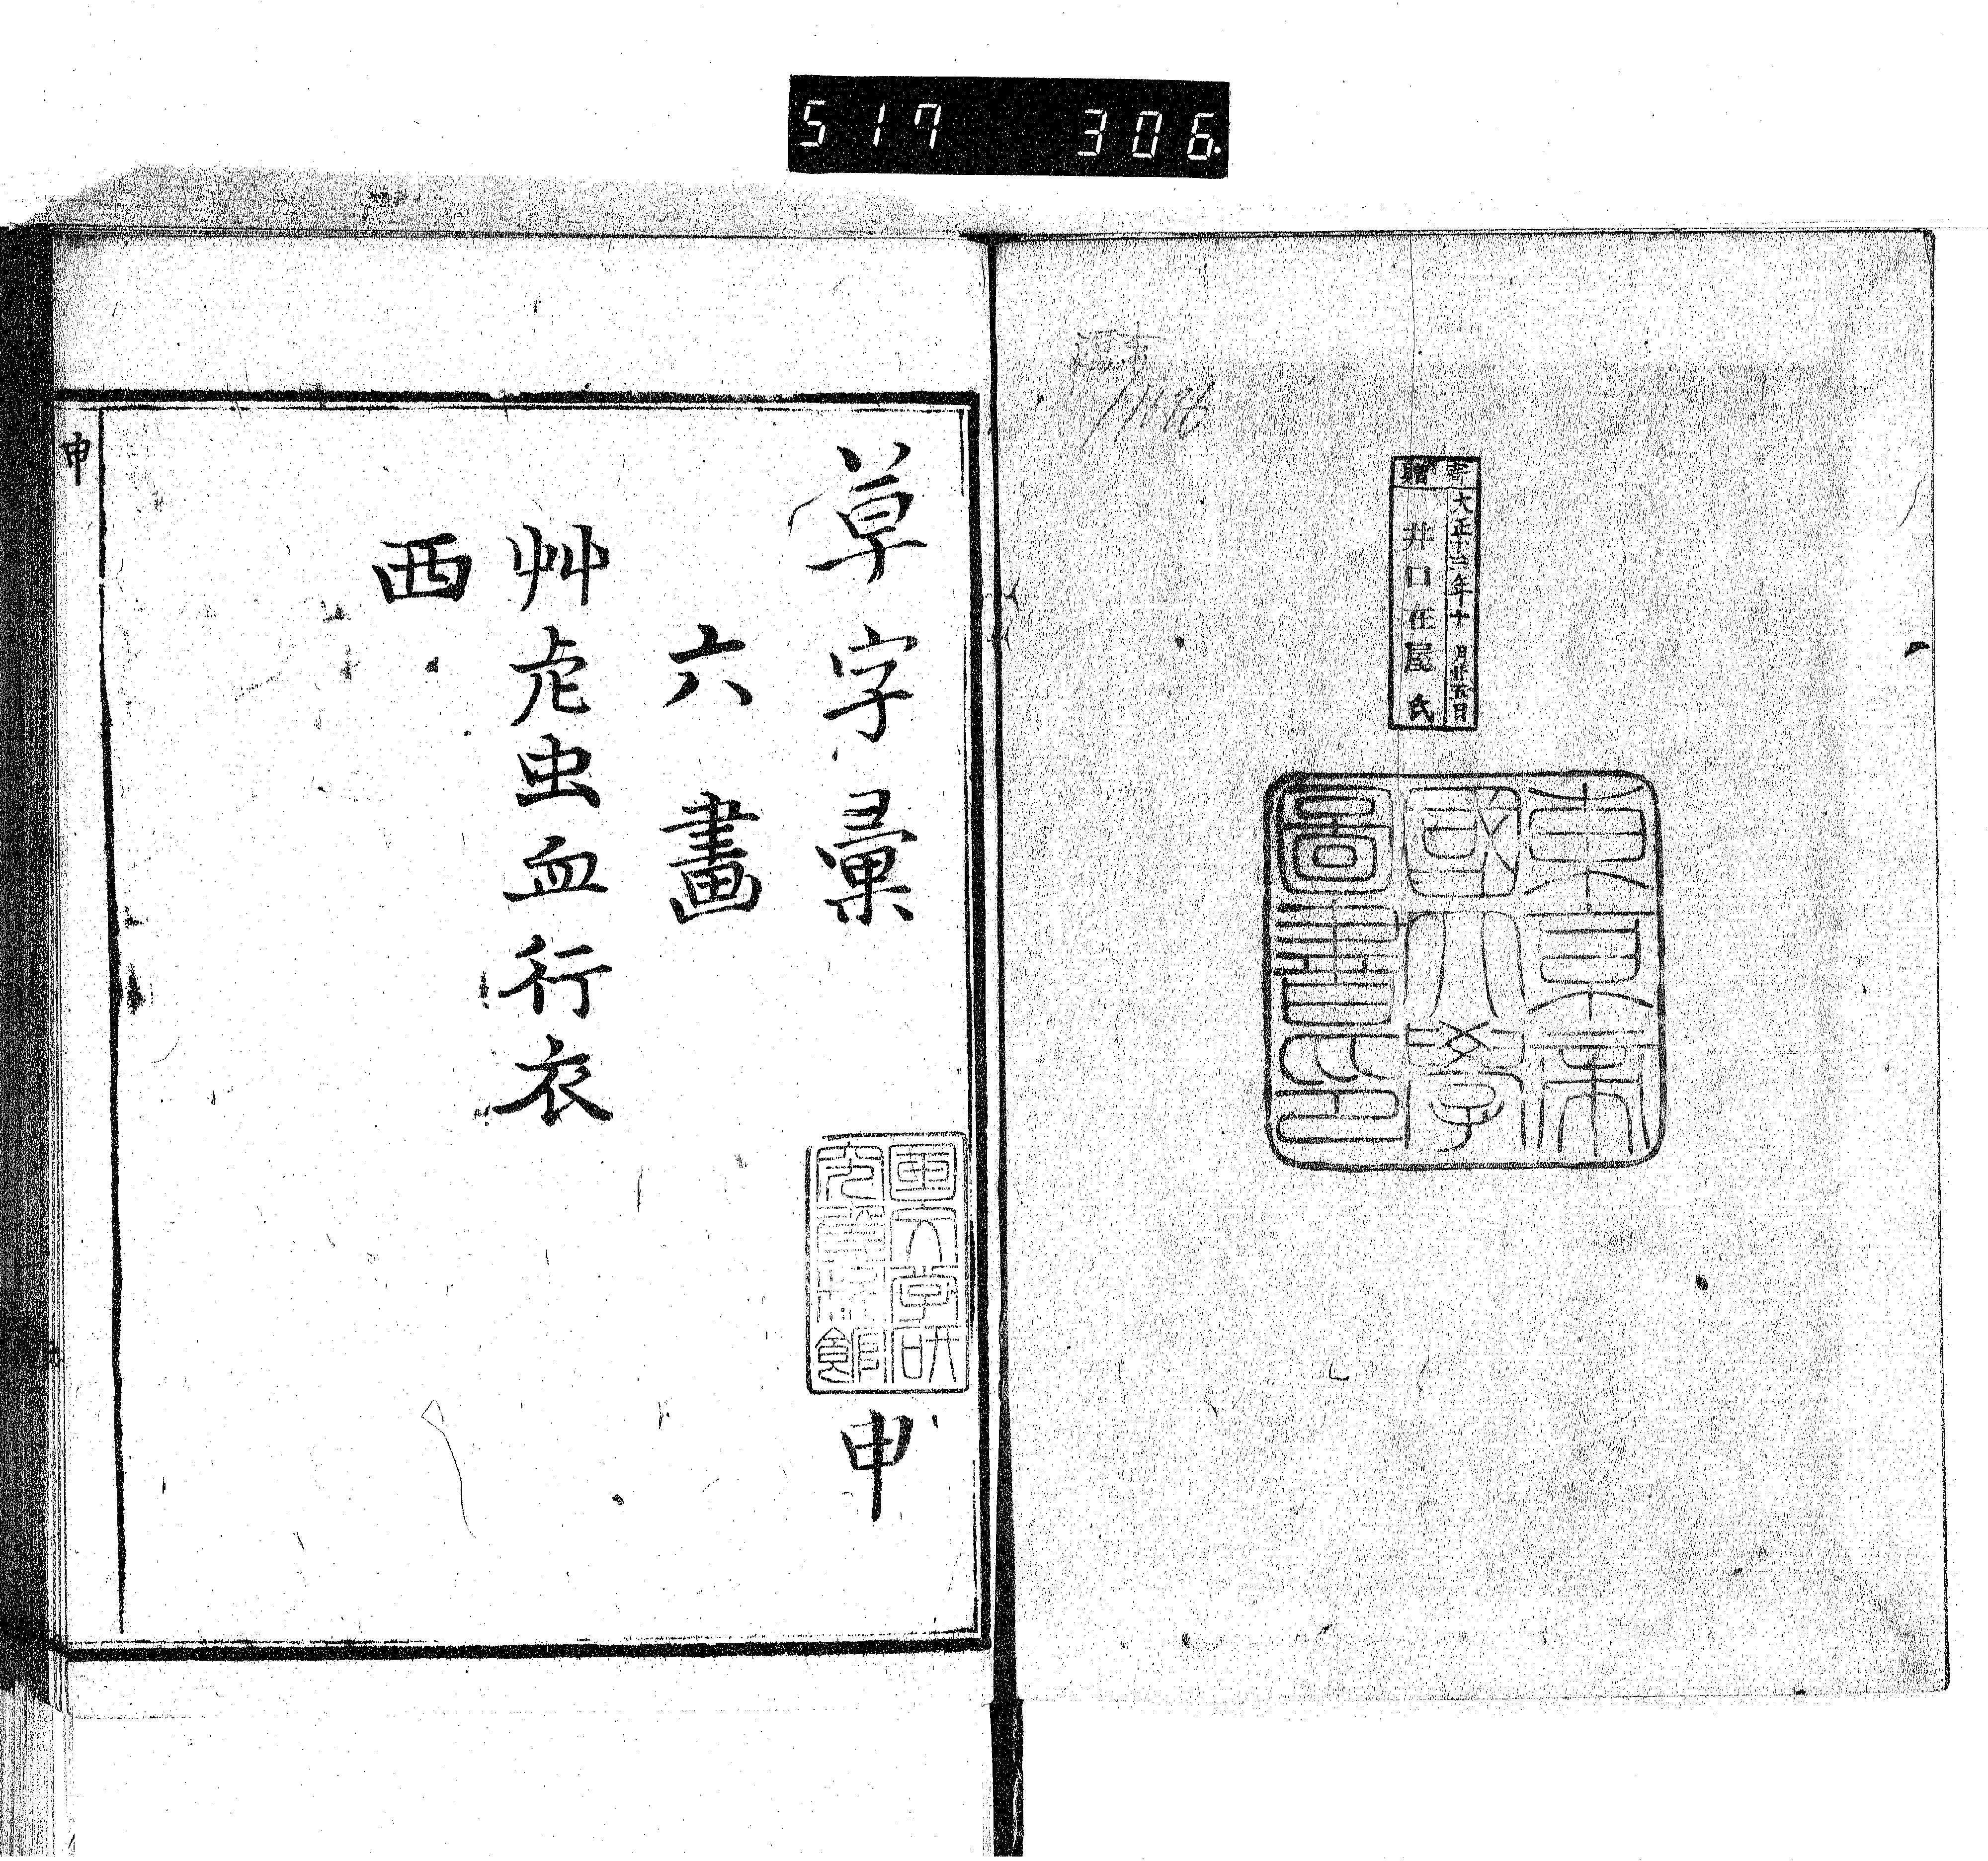 517 306
寄贈
大正十三年十月廿五日
井口在屋氏
東京帝
國大學
圖書印
草字彙 申
六畫
艸虍虫血行衣
襾
國文学研
究資料館
申